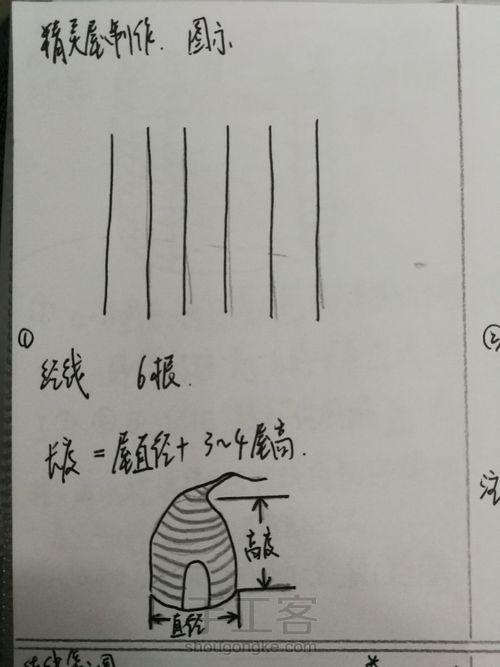 精灵屋制作. 图示
①
经线 6根.
长度 = 屋直径+ 3~4屋高.
高度
直径
②
注
手工客
shougongke.com